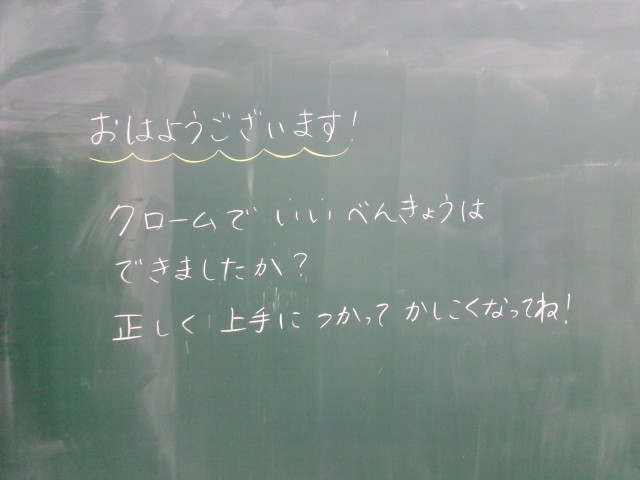 おはようございます!
クロームで いい べんきょうは
できましたか?
正しく 上手に つかって かしこくなってね!